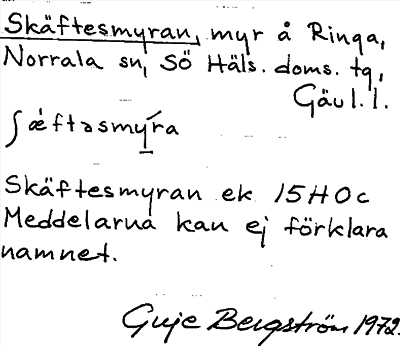 Skäftesmyran, myr å Ringa,
Norrala sn, Sö Häls. doms. tg,
Gävl. l.
ʃæ´ftəsmy´ra
Skäftesmyran ek 15H0c
Meddelarna kan ej förklara
namnet.
Guje Bergström 1972.